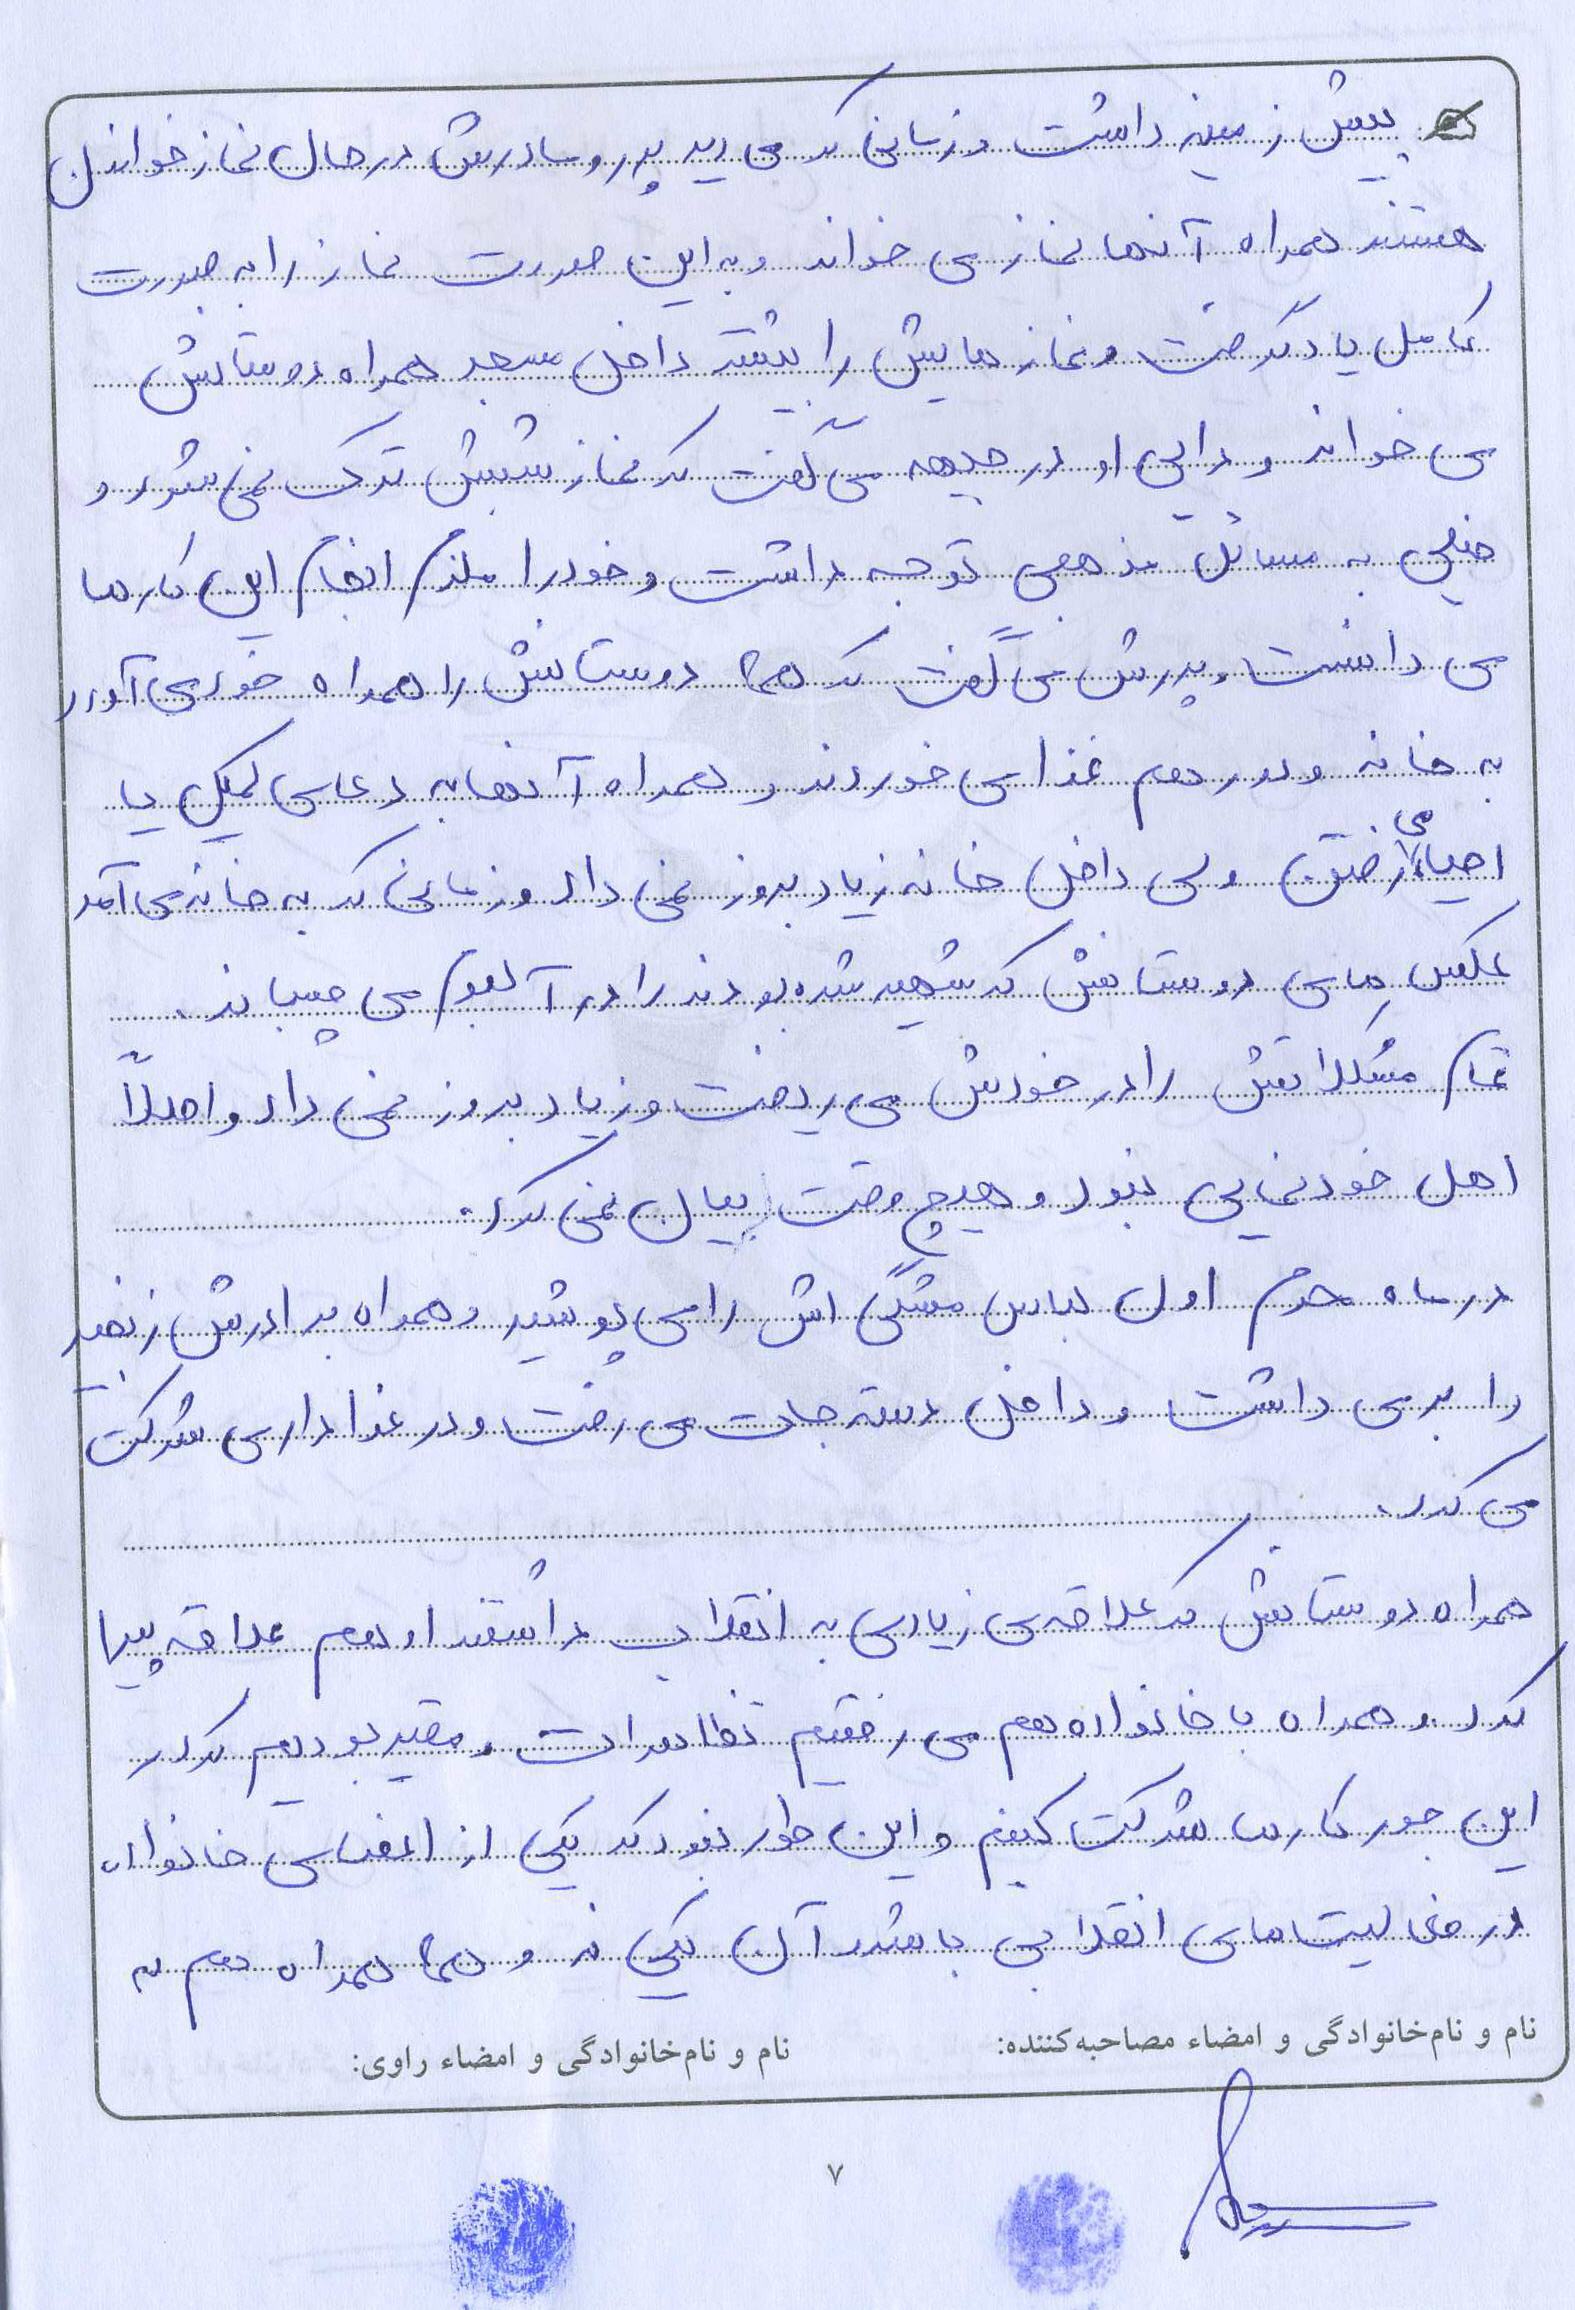 پیش زمینه داشت و زمانی که می دید پدر و مادرش در حال نماز خواندن
هستند همراه آنها نماز می خواند و به این صورت نماز را به صورت
کامل یاد گرفت و نماز هایش را بیشتر داخل مسجد همراه دوستانش
می خواند و دایی او در جبهه می گفت که نماز شبش ترک نمی شود و
خیلی به مسائل مذهبی توجه داشت و خود را ملزم انجام این کارها
می دانست و پدرش می گفت که همه دوستانش را همراه خود می آورد
به خانه و دور هم غذا می خوردند و همراه آنها به دعای کمیل یا
احیاء می رفتن ولی داخل خانه زیاد بروز نمی داد و زمانی که به خانه می آمد
عکس های دوستانش که شهید شده بودند را در آلبوم می چسباند.
تمام مشکلاتش را در خودش می ریخت و زیاد بروز نمی داد و اصلاً
اهل خودنمایی نبود و هیچ وقت بیان نمی کرد.
در ماه محرم اول لباس مشگی اش را می پوشید و همراه برادرش زنجیر
را بر می داشت و داخل دسته جات می رفت و در عذاداری شرکت
می کرد.
همراه دوستانش که علاقه ی زیادی به انقلاب داشتند او هم علاقه پیدا
کرد و همراه با خانواده هم می رفتیم تظاهرات و مقید بودیم که در
این جور کارها شرکت کنیم و این طور نبود که یکی از اعضای خانواده
در فعالیت های انقلابی باشد آن یکی نه و همه همراه هم به
نام و نام‌خانوادگی و امضاء مصاحبه‌کننده:
نام و نام‌خانوادگی و امضاء راوی:
۷